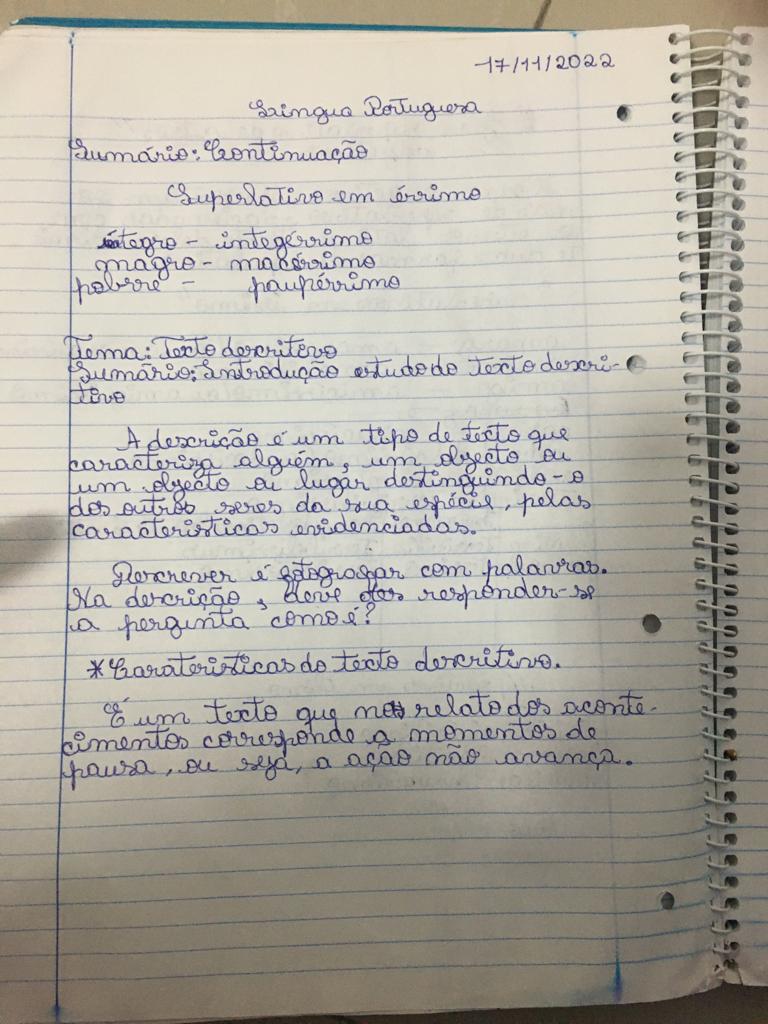 17/11/2022
Língua Portuguesa
Sumário: Continuação
Superlativo em érrimo
íntegro - integérrimo
magro - macérrimo
pobrre - paupérrimo
Tema: Texto descritivo
Sumário: Introdução estudo do texto descri-
tivo
A descrição é um tipo de texto que
caracteriza alguém, um objecto ou
um objecto ou lugar destinguindo-o
dos outros seres da sua espécie, pelas
caracteristicas evidenciadas.
Descrever é fotografar com palavras.
Na descrição, deve responder-se
a pergunta como é?
*Carateristicas do texto descritivo.
É um texto que no relato dos aconte-
cimentos corresponde a momentos de
pausa, ou seja, a ação não avança.